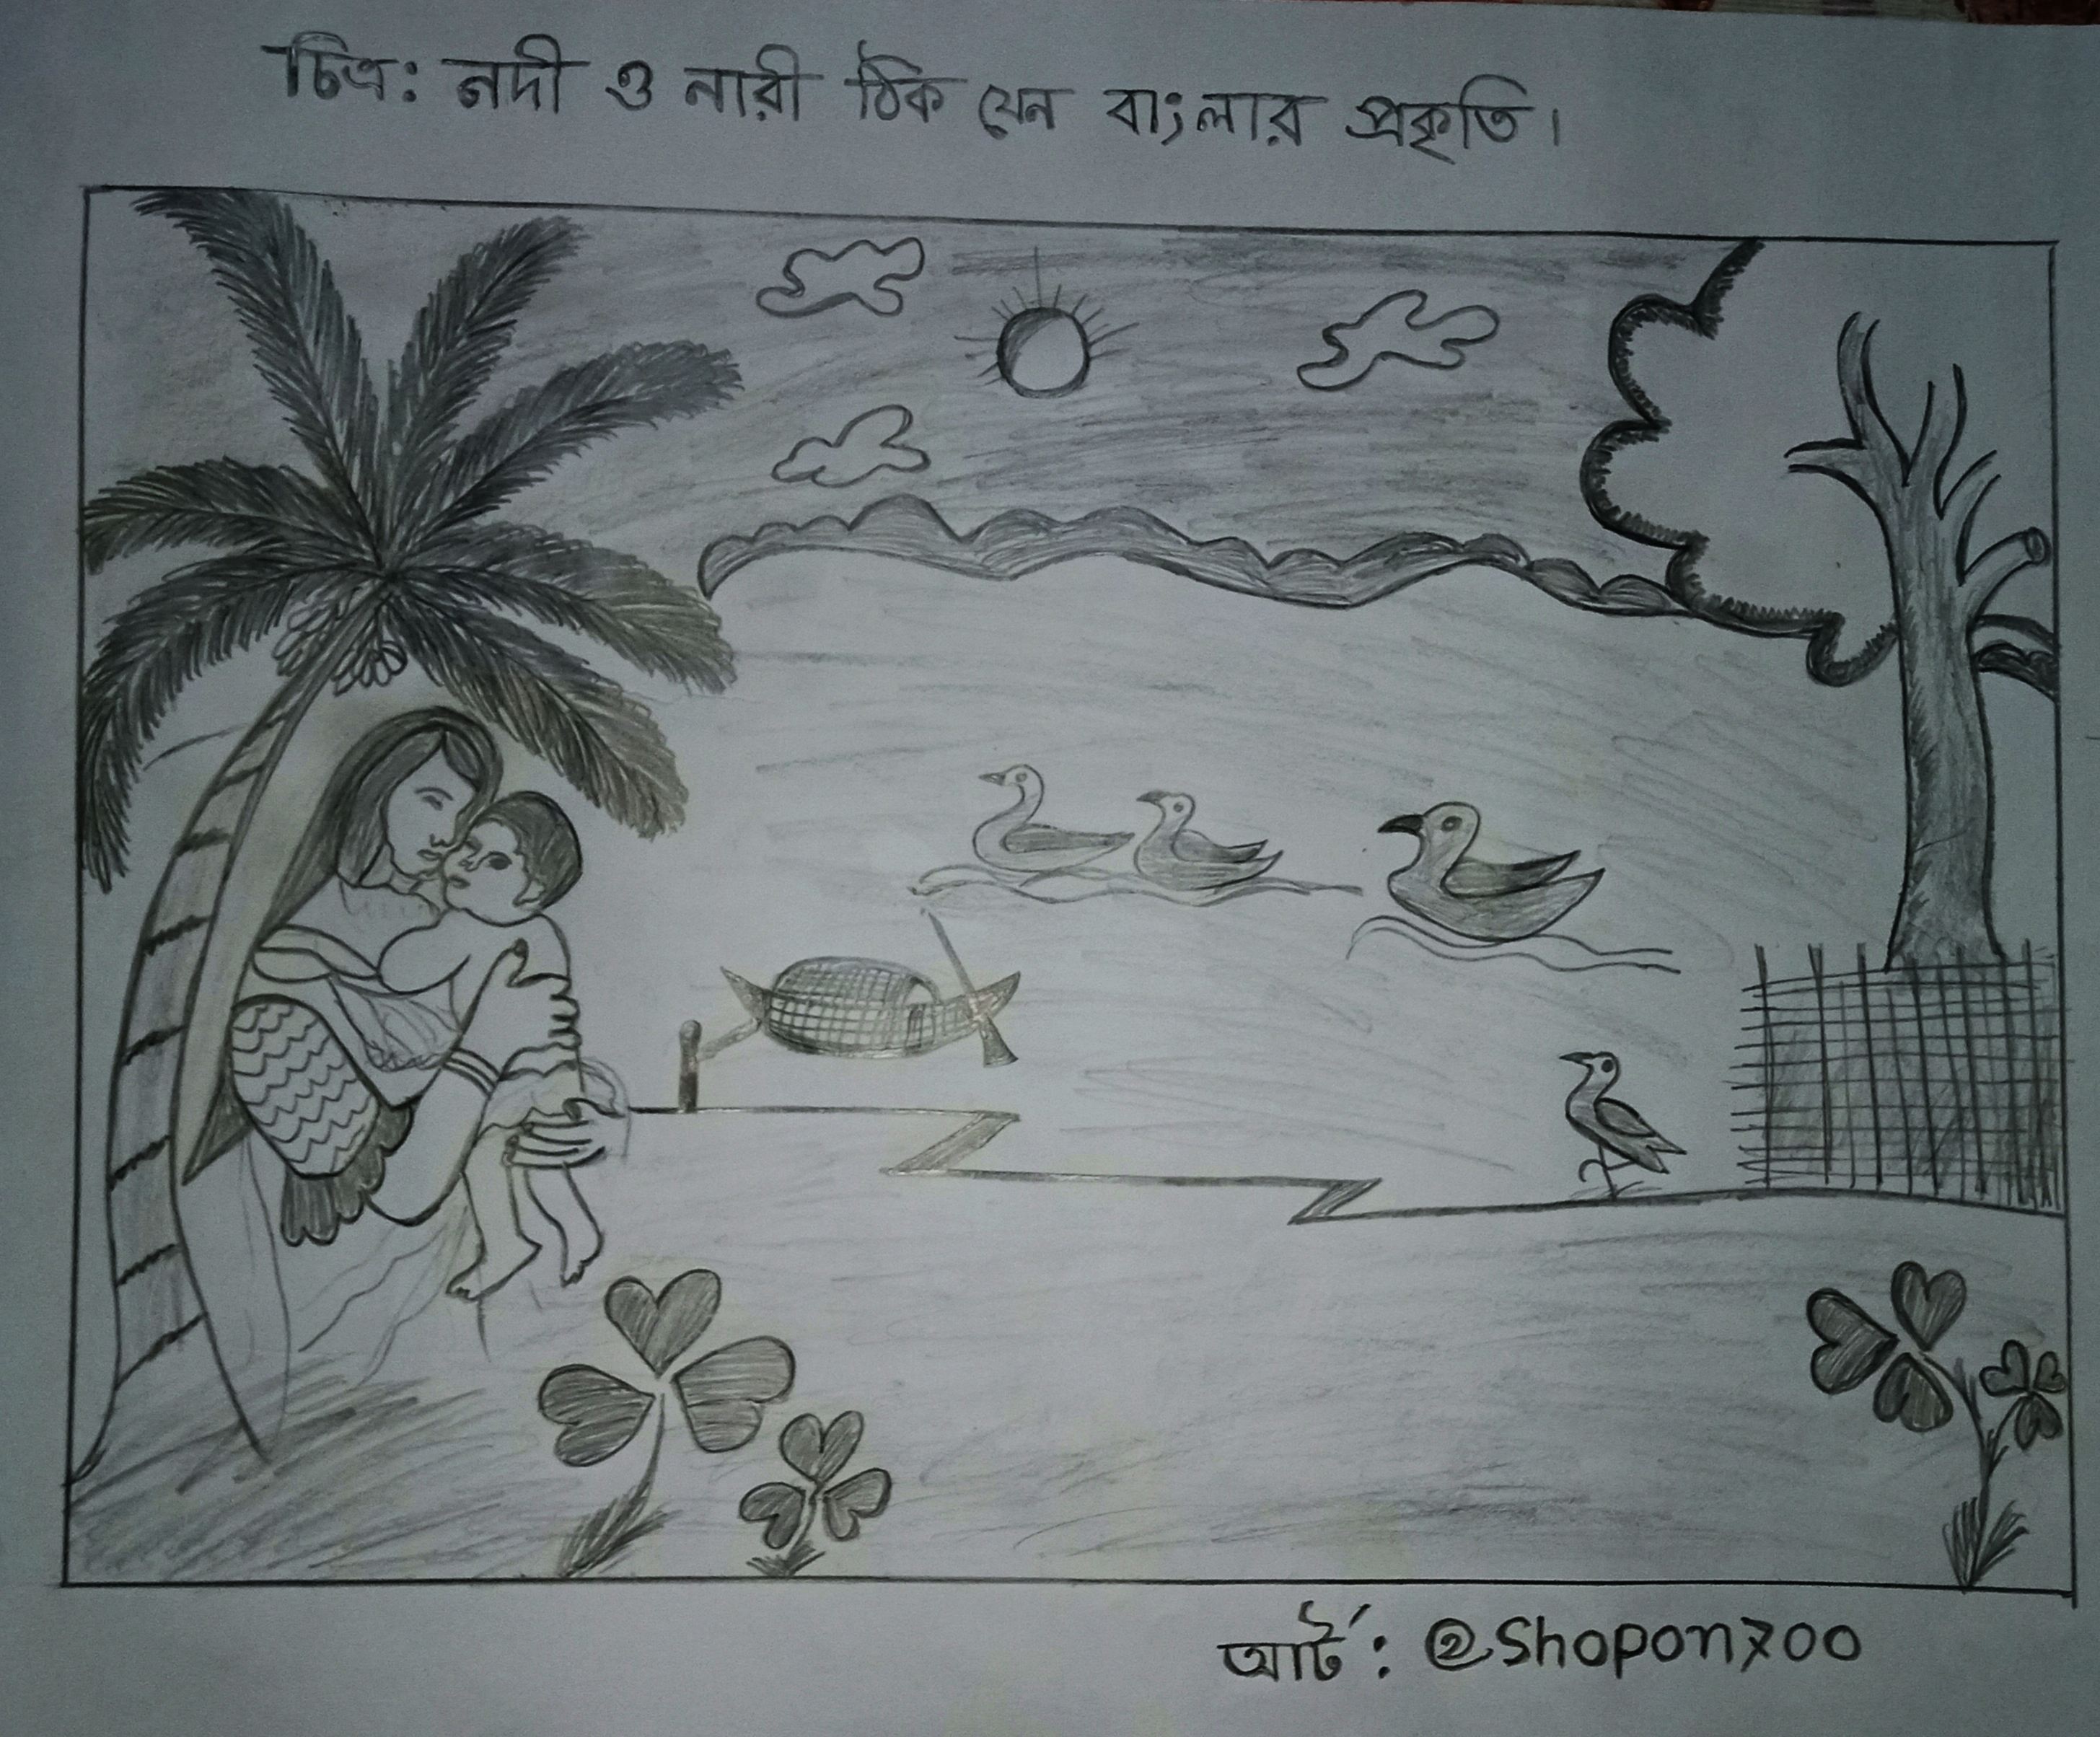 চিত্র: নদী ও নারী ঠিক যেন বাংলার প্রকৃতি।
আর্ট: @Shopon700